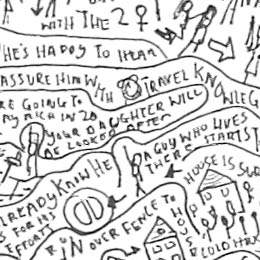 WITH THE 2 ♀
HE'S HAPPY TO HEAR
ASSURE HIM WITH TRAVEL KNOWLEG
RE GOING TO
RICH IN 20
YOUR DAUGHTER WILL
BE LOOKED AFTER
A GUY WHO LIVES
THERE STARTS
ALREADY KNOW HE
S FOR HIS
EFFORTS
HOUSE IS SUR
RUN OVER FENCE TO
HOUS
COLD HA